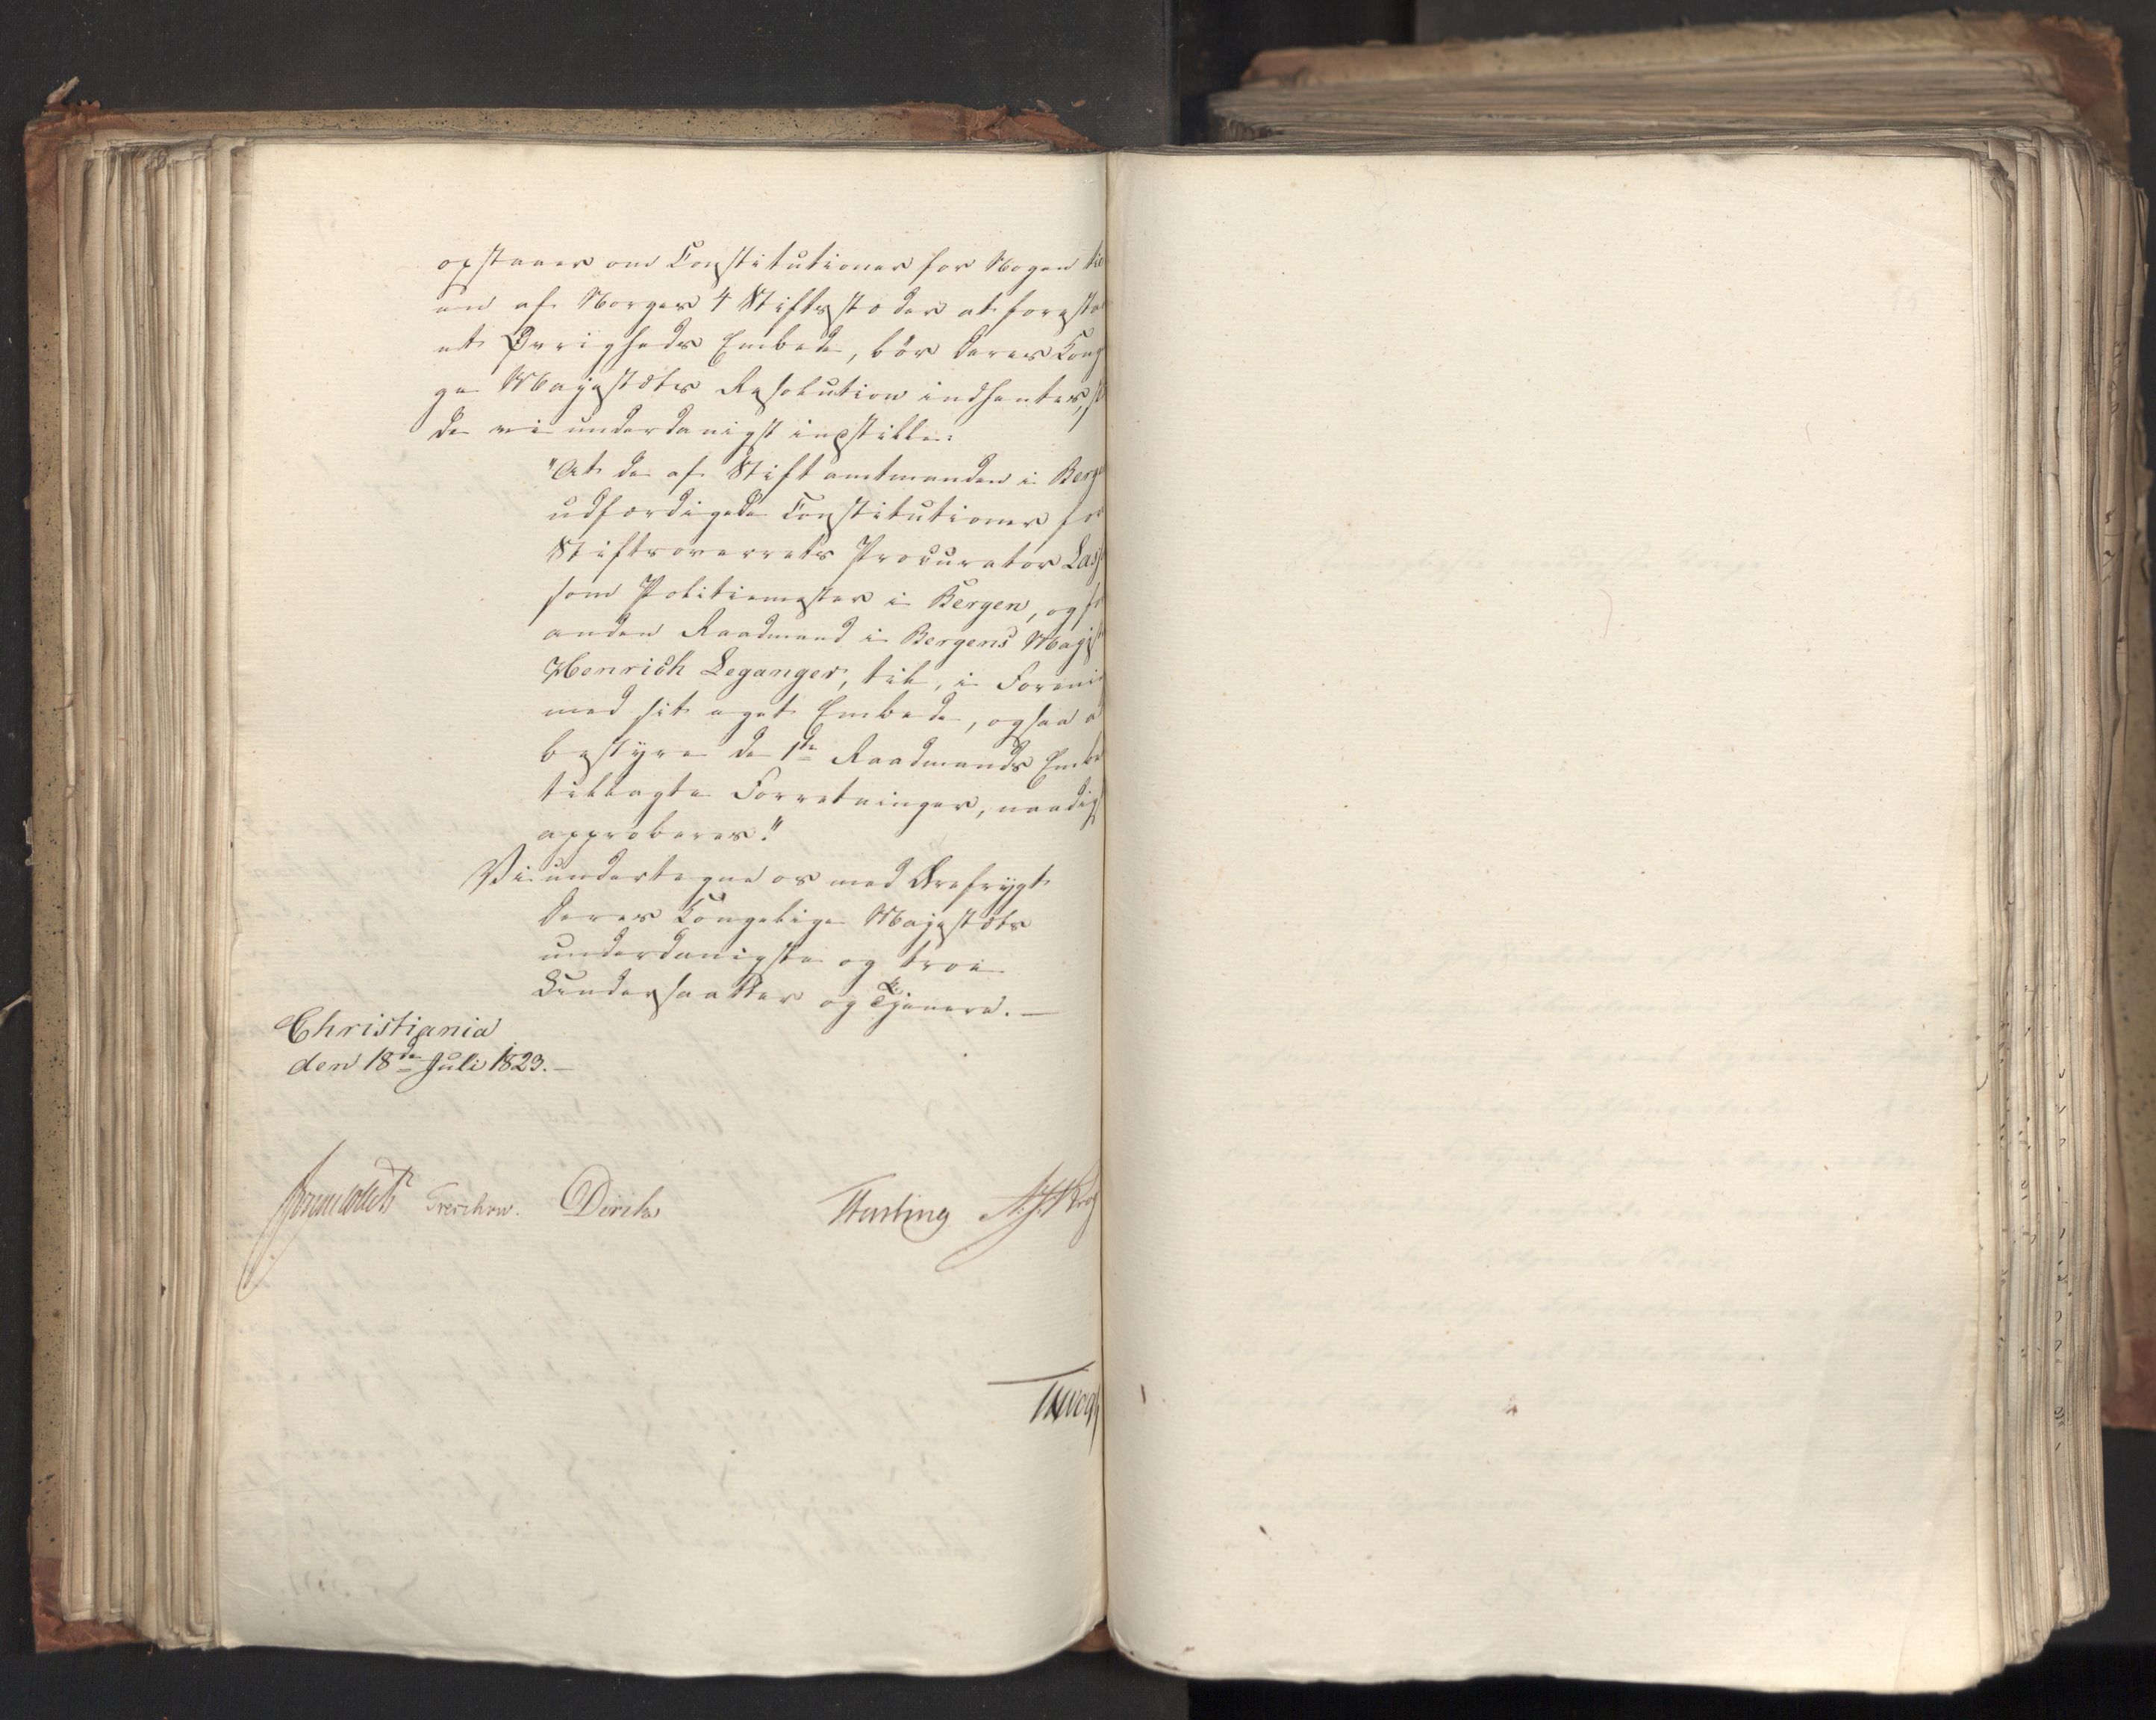 opstaaer om Constitutioner for Nogen til
en af Norges 4 Stiftsstæder at foresta
et Øvrigheds Embede, bör Deres Kong
ge Majestæts Resolution indhentes,
de vi underdanigst indstille:
"At de af Stiftamtmanden i Berge
udfærdigede Constitutioner for
Stiftsoverrets Procurator Las
som Politiemester i Bergen, og for
anden Raadmand i Bergens Magist
Henrich Leganger, til, i Forenin
med sit eget Embede, ogsaa a
bestyre de 1ste Raadmands Embe
tillagte Forretninger, naadigst
approberes."
Vi undertegne os med Ærefrygt
Deres Kongelige Majestæts
underdanigste og troe
Undersaatter og Tjenere. —
Christiania
den 18de Juli 1823. —
Sommerhielm Treschow. Diriks Fasting